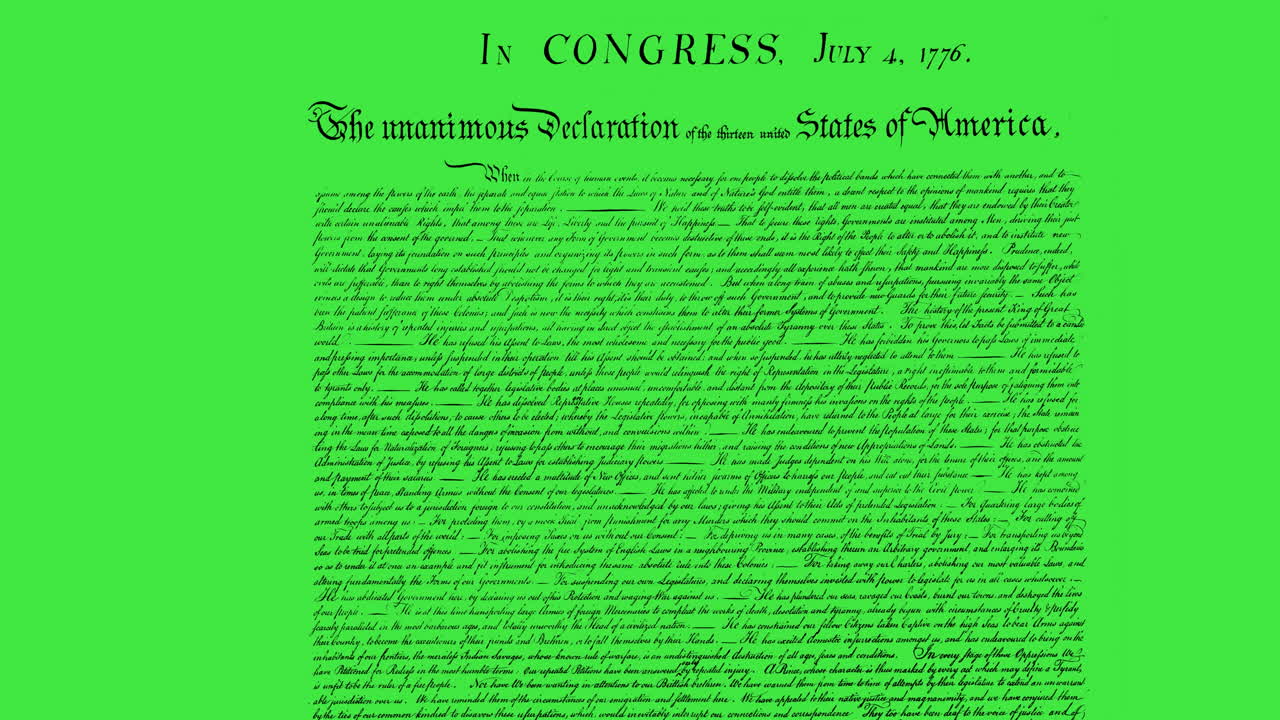 In CONGRESS, July 4, 1776.
The unanimous Declaration of the thirteen united States of America,
When in the Course of human events, it becomes necessary for one people to dissolve the political bands which have connected them with another, and to
assume among the powers of the earth, the separate and equal station to which the Laws of Nature and of Nature's God entitle them, a decent respect to the opinions of mankind requires that they
should declare the causes which impel them to the separation. — We hold these truths to be self-evident, that all men are created equal, that they are endowed by their Creator
with certain unalienable Rights, that among these are Life, Liberty and the pursuit of Happiness — That to secure these rights, Governments are instituted among Men, deriving their just
powers from the consent of the governed, — That whenever any Form of Government becomes destructive of these ends, it is the Right of the People to alter or to abolish it, and to institute new
Government, laying its foundation on such principles and organizing its powers in such form, as to them shall seem most likely to effect their Safety and Happiness. Prudence, indeed,
will dictate that Governments long established should not be changed for light and transient causes; and accordingly all experience hath shewn, that mankind are more disposed to suffer, while
evils are sufferable, than to right themselves by abolishing the forms to which they are accustomed. But when a long train of abuses and usurpations, pursuing invariably the same Object
evinces a design to reduce them under absolute Despotism, it is their right, it is their duty, to throw off such Government, and to provide new Guards for their future security. — Such has
been the patient sufferance of these Colonies; and such is now the necessity which constrains them to alter their former Systems of Government. The history of the present King of Great
Britain is a history of repeated injuries and usurpations, all having in direct object the establishment of an absolute Tyranny over these States. To prove this, let Facts be submitted to a candid
world. — He has refused his Assent to Laws, the most wholesome and necessary for the public good. — He has forbidden his Governors to pass Laws of immediate
and pressing importance, unless suspended in their operation till his Assent should be obtained; and when so suspended, he has utterly neglected to attend to them — He has refused to
pass other Laws for the accommodation of large districts of people, unless those people would relinquish the right of Representation in the Legislature, a right inestimable to them and formidable
to tyrants only. — He has called together legislative bodies at places unusual, uncomfortable, and distant from the depository of their Public Records, for the sole purpose of fatiguing them into
compliance with his measures. — He has dissolved Representative Houses repeatedly, for opposing with manly firmness his invasions on the rights of the people. — He has refused for
a long time, after such dissolutions, to cause others to be elected; whereby the Legislative powers, incapable of Annihilation, have returned to the People at large for their exercise; the State remain
ing in the mean time exposed to all the dangers of invasion from without, and convulsions within. — He has endeavoured to prevent the population of these States; for that purpose obstruc
ting the Laws for Naturalization of Foreigners; refusing to pass others to encourage their migrations hither, and raising the conditions of new Appropriations of Lands. — He has obstructed the
Administration of Justice, by refusing his Assent to Laws for establishing Judiciary powers — He has made Judges dependent on his Will alone, for the tenure of their offices, and the amount
and payment of their salaries — He has erected a multitude of New Offices, and sent hither swarms of Officers to harrass our People, and eat out their substance — He has kept among
us, in times of peace, Standing Armies without the Consent of our legislatures. — He has affected to render the Military independent of and superior to the Civil power — He has combined
with others to subject us to a jurisdiction foreign to our constitution, and unacknowledged by our laws; giving his Assent to their Acts of pretended Legislation: — For Quartering large bodies of
armed troops among us: — For protecting them, by a mock Trial, from punishment for any Murders which they should commit on the Inhabitants of these States: — For cutting off
our Trade with all parts of the world: — For imposing Taxes on us without our Consent: — For depriving us in many cases, of the benefits of Trial by Jury; — For transporting us beyond
Seas to be tried for pretended offences — For abolishing the free System of English Laws in a neighbouring Province, establishing therein an Arbitrary government, and enlarging its Boundaries
so as to render it at once an example and fit instrument for introducing the same absolute rule into these Colonies: — For taking away our Charters, abolishing our most valuable Laws, and
altering fundamentally the Forms of our Governments: — For suspending our own Legislatures, and declaring themselves invested with power to legislate for us in all cases whatsoever. —
He has abdicated Government here, by declaring us out of his Protection and waging War against us. — He has plundered our seas, ravaged our Coasts, burnt our towns, and destroyed the lives
of our people. — He is at this time transporting large Armies of foreign Mercenaries to compleat the works of death, desolation and tyranny, already begun with circumstances of Cruelty & perfidy
scarcely paralleled in the most barbarous ages, and totally unworthy the Head of a civilized nation. — He has constrained our fellow Citizens taken Captive on the high Seas to bear Arms against
their Country, to become the executioners of their friends and Brethren, or to fall themselves by their Hands. — He has excited domestic insurrections amongst us, and has endeavoured to bring on the
inhabitants of our frontiers, the merciless Indian Savages, whose known rule of warfare, is an undistinguished destruction of all ages, sexes and conditions. In every stage of these Oppressions We
have Petitioned for Redress in the most humble terms: Our repeated Petitions have been answered only by repeated injury. A Prince, whose character is thus marked by every act which may define a Tyrant,
is unfit to be the ruler of a free people. Nor have We been wanting in attentions to our Brittish brethren. We have warned them from time to time of attempts by their legislature to extend an unwarrant
able jurisdiction over us. We have reminded them of the circumstances of our emigration and settlement here. We have appealed to their native justice and magnanimity, and we have conjured them
by the ties of our common kindred to disavow these usurpations, which, would inevitably interrupt our connections and correspondence They too have been deaf to the voice of justice and of